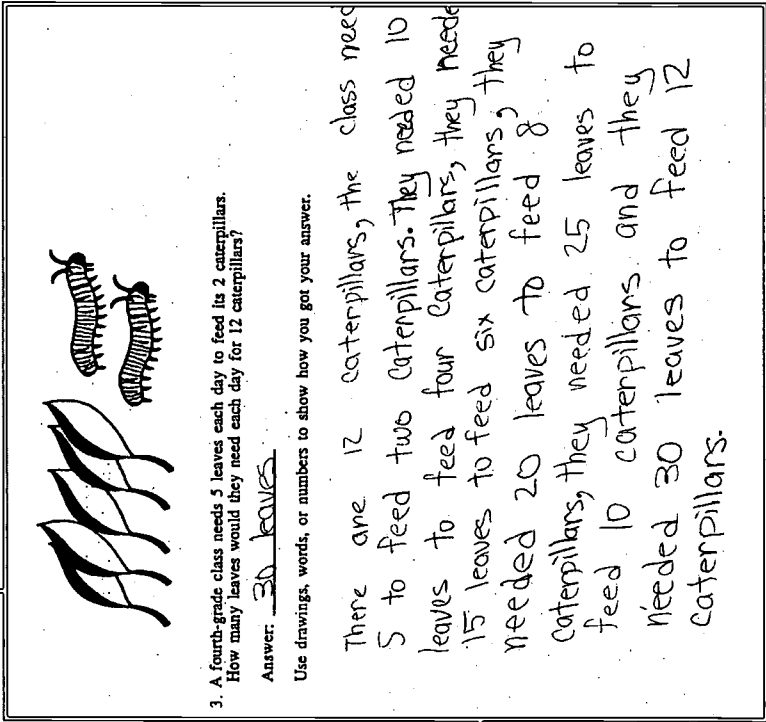 3. A fourth-grade class needs 5 leaves each day to feed its 2 caterpillars.
How many leaves would they need each day for 12 caterpillars?
Answer: 30 leaves
Use drawings, words, or numbers to show how you got your answer.
There are 12 caterpillars, the class need
5 to feed two caterpillars. They needed 10
leaves to feed four caterpillars, they neede
15 leaves to feed six caterpillars, they
needed 20 leaves to feed 8
caterpillars, they needed 25 leaves to
feed 10 caterpillars and they
needed 30 leaves to feed 12
caterpillars.